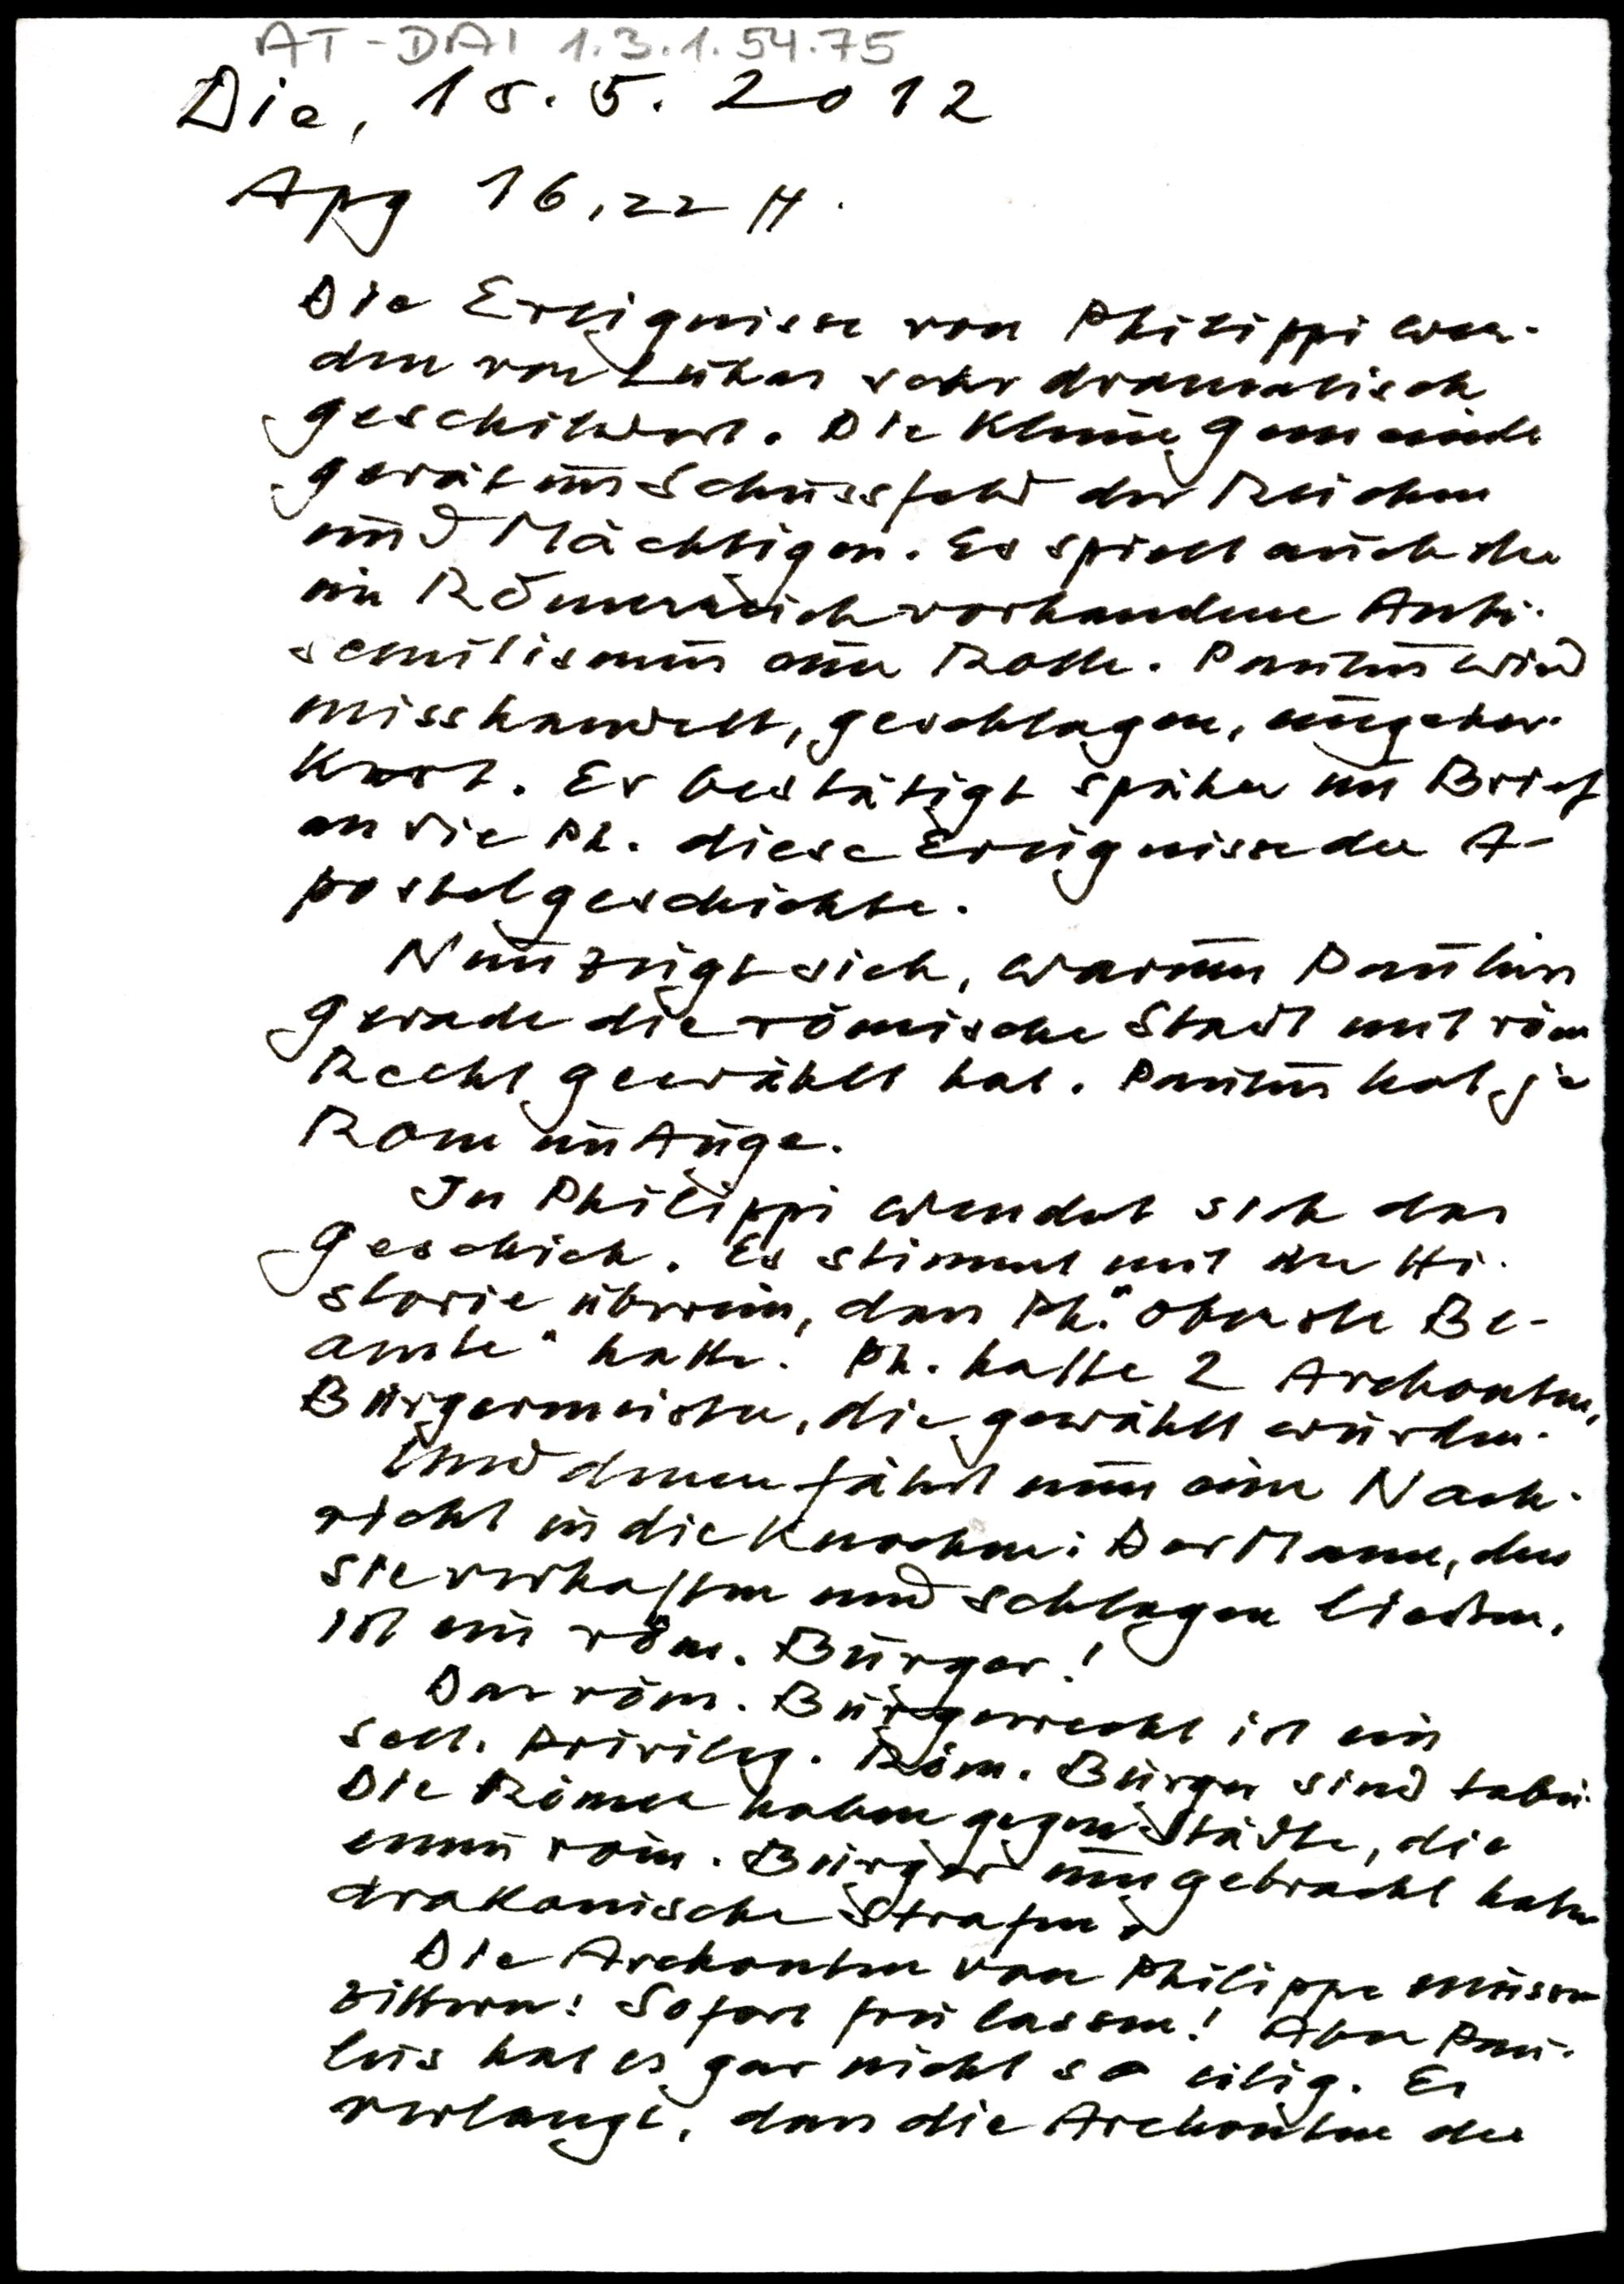 AT-DAI 1.3.1.54.75
Die, 15.5.2012
Apg 16,22 ff.
Die Ereignisse von Philippi wer-
den von Lukas sehr dramatisch
geschildert. Die kleine Gemeinde
gerät ins Schussfeld der Reichen
und Mächtigen. Es spielt auch der
im Römerreich vorhandene Anti-
semitismus eine Rolle. Paulus wird
misshandelt, geschlagen, eingeker-
kert. Er bestätigt später im Brief
an die Ph. diese Ereignisse der A-
postelgeschichte.
Nun zeigt sich, warum Paulus
gerade die römische Stadt mit röm
Recht gewählt hat. Paulus hat ja
Rom im Auge.
In Philippi wendet sich das
Geschick. Es stimmt mit der Hi-
storie überein, dass Ph. "oberste Be-
amte" hatte. Ph. hatte 2 Archonten,
Bürgermeister, die gewählt wurden.
Und denen fährt nun eine Nach-
richt in die Knochen: Der Mann, den
sie verhaften und schlagen ließen,
ist ein röm. Bürger!
Das röm. Bürgerrecht ist ein
selt. Privileg. Röm. Bürger sind tabu.
Die Römer haben gegen Städte, die
einen röm. Bürger umgebracht haben
drakonische Strafen.
Die Archonten von Philippi müssen
zittern! Sofort frei lassen! Aber Pau-
lus hat es gar nicht so eilig. Er
verlangt, dass die Archonten der